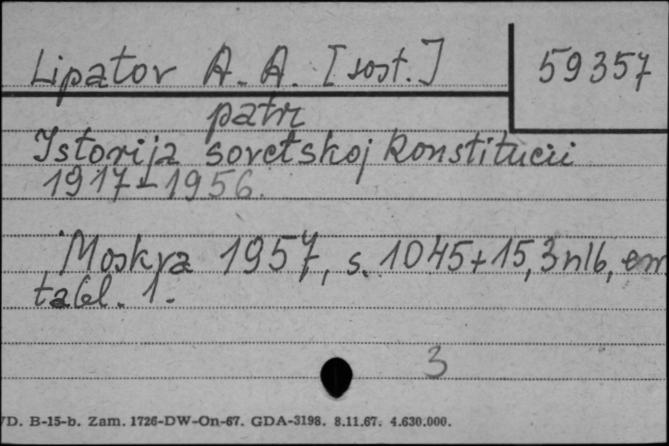 Lipatov A. A. [sost.]
59357
patrz
Istorija sovetskoj Konstitucii
1917-1956.
Moskva 1957, s. 1045+15, 3nlb, em
tabl. 1.
3
D. B-15-b. Zam. 1726-DW-On-67. GDA-3198. 8.11.67. 4.630.000.